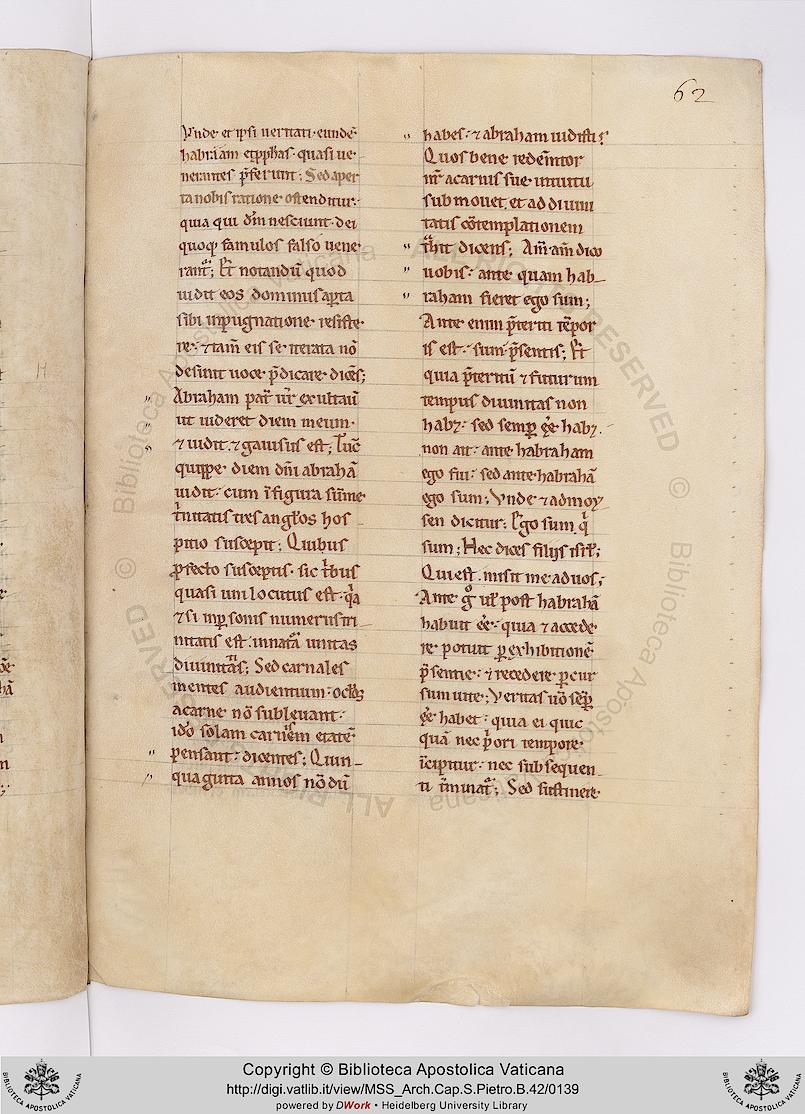 62
Vnde et ipsi ueritati eundē
habraam et ꝓphas quasi ue-
nerantes p̄ferunt; Sed aper
ta nobis ratione ostenditur
quia qui dm̄ nesciunt dei
quoq; famulos falso uene
rant᷑; Et notandū quod
uidit eos dominus aperta
sibi inpugnatione resiste
re ⁊ tam̄ eis se iterata nō
desinit uoce p̄dicare dicēs;
Abraham pat̄ ur̄ exultauit
ut uideret diem meum
⁊ uidit ⁊ gauisus est; Tūc
quippe diem dn̄i abrahā
uidit cum ī figura sūme
t̄nitatis tres angłos hos
pitio suscepit; Quibus
ꝓfecto susceptis sic tribus
quasi uni locutus est qa
⁊ si in ꝑsonis numerus tri
nitatis est in natā unitas
diuinitatis; Sed carnales
mentes audientium ocłos
a carne nō subleuant
idō solam carnis in eo etatē
pensant dicentes; Quin-
quaginta annos nōdū
habes ⁊ abraham uidisti?
Quos bene redēmtor
nr̄ a carnis sue intuitu
submouet et ad diuini
tatis cōtemplationem
t̄hit dicens; Am̄ am̄ dico
uobis ante quam hab-
raham fieret ego sum;
Ante enim p̄teriti tēpor
is est sum p̄sentis; Et
quia p̄teritū ⁊ futurum
tempus diuinitas non
habꝫ sed semꝑ eē habꝫ
non ait ante habraham
ego fui sed ante habrahā
ego sum; Vnde ⁊ ad moy
sen dicitur; Ego sum q
sum; Hec dices filijs isrł;
Qui est misit me ad uos;
Ante g̊ uł post habrahā
habuit eē quia ⁊ accede
re potuit ꝑ exhibitionē
p̄sentie ⁊ recedere ꝑ cur
sum uite; Veritas uō semꝑ
eē habet quia ei quic
quā nec p̄ori tempore
īcipitur nec subsequen
ti t̄minat᷑; Sed sustinere
Copyright © Biblioteca Apostolica Vaticana
http://digi.vatlib.it/view/MSS_Arch.Cap.S.Pietro.B.42/0139
powered by DWork • Heidelberg University Library